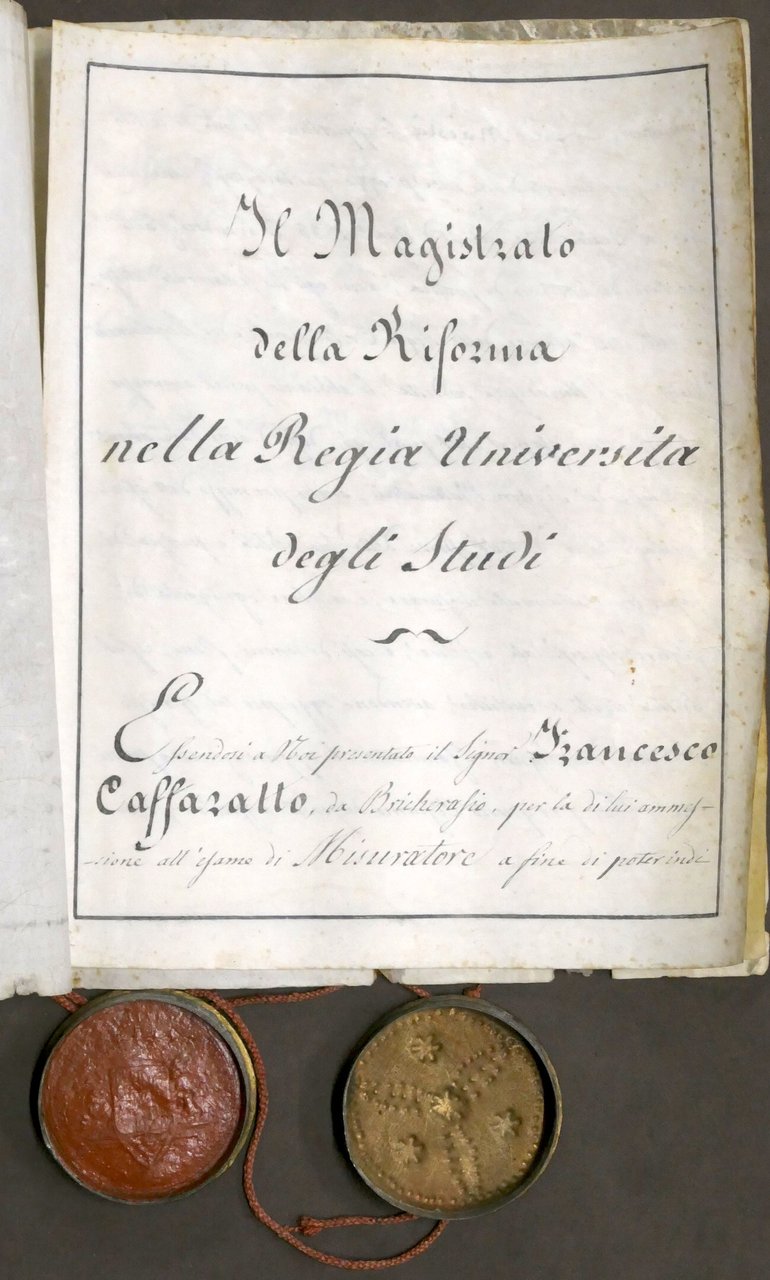 Il Magistrato
della Riforma
nella Regia Universita
degli Studi
Essendosi a Noi presentato il Signor Francesco
Caffaratto, da Bricherasio, per la di lui ammes-
-sione all'esame di Misuratore a fine di poter indi